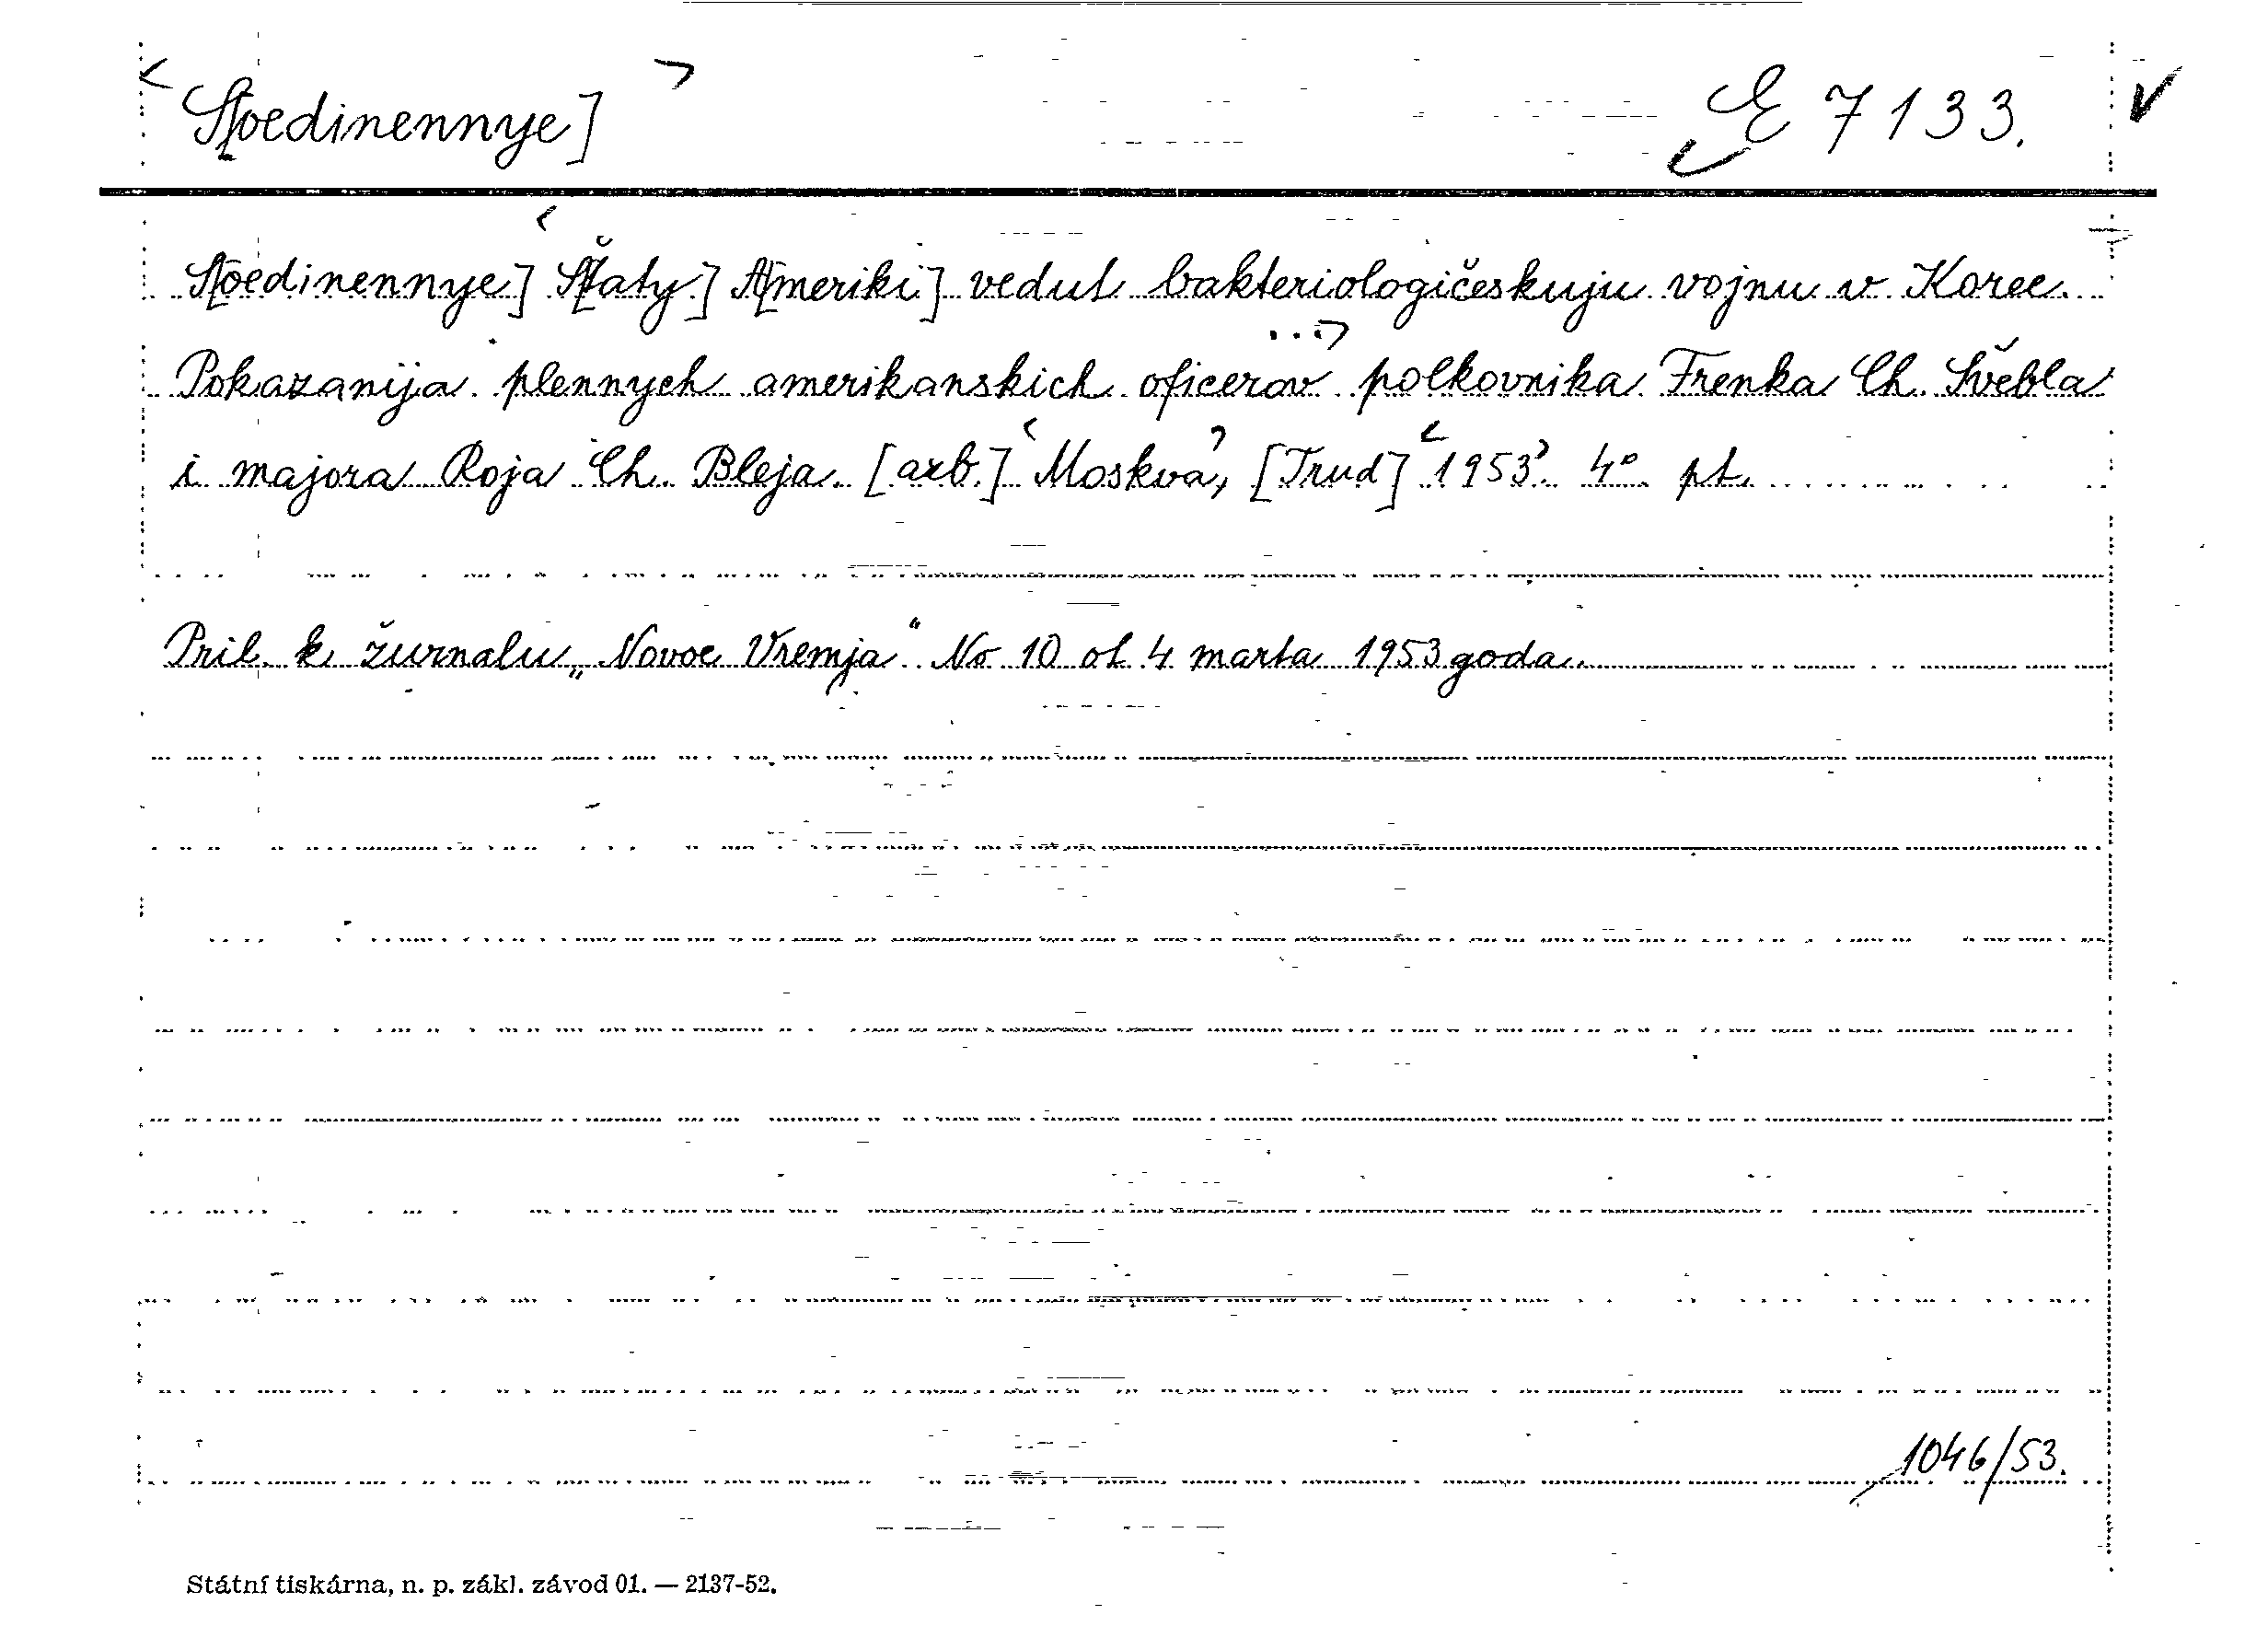 S[oedinennye] E 7133.
S[oedinennye] Š[taty] A[meriki] vedut bakteriologičeskuju vojnu v Koree.
Pokazanija plennych amerikanskich oficerov polkovnika Frenka Ch. Švebla
i majora Roja Ch. Bleja. [azb.] Moskva, [Trud] 1953. 4° pt.
Pril. k žurnalu „Novoe Vremja“ No 10 ot 4 marta 1953 goda.
1046/53.
Státní tiskárna, n. p. zákl. závod 01. — 2137-52.